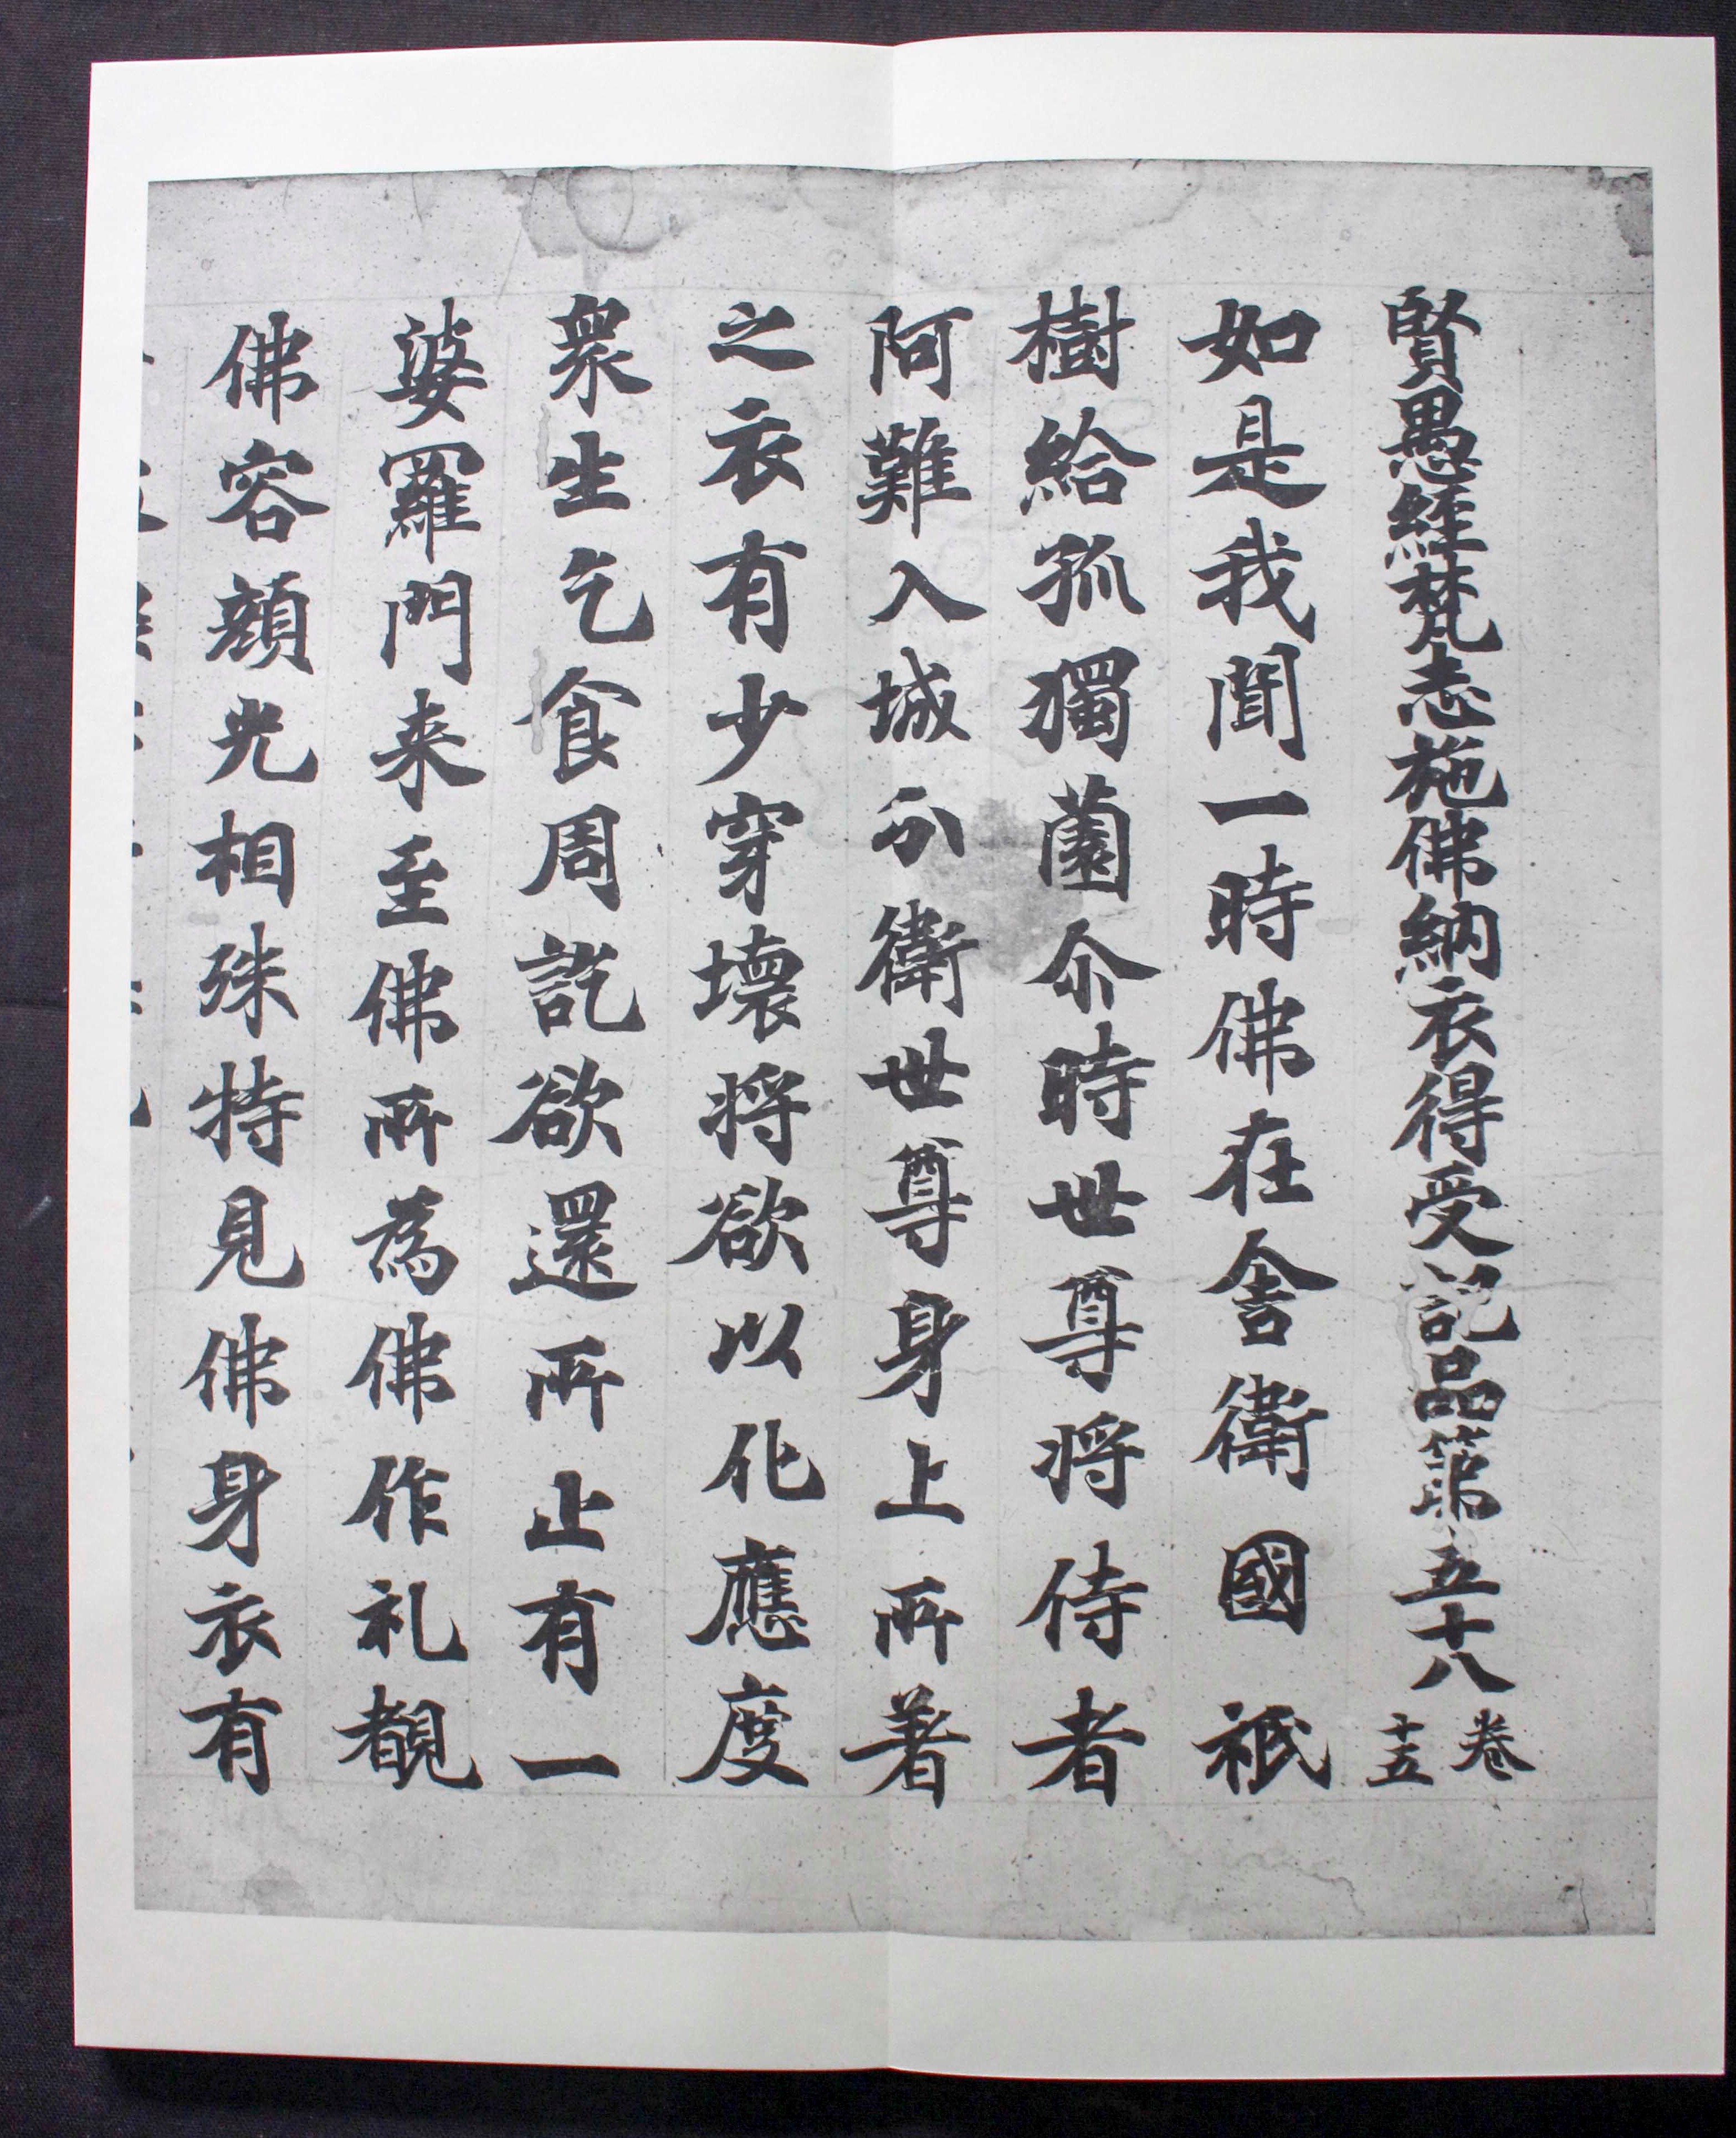 賢愚經梵志施佛納衣得受記品第五十八 卷十五
如是我聞一時佛在舍衛國祇
樹給孤獨薗尒時世尊將侍者
阿難入城分衛世尊身上所著
之衣有少穿壞將欲以化應度
衆生乞食周訖欲還所止有一
婆羅門来至佛所為佛作礼覩
佛容顔光相殊特見佛身衣有